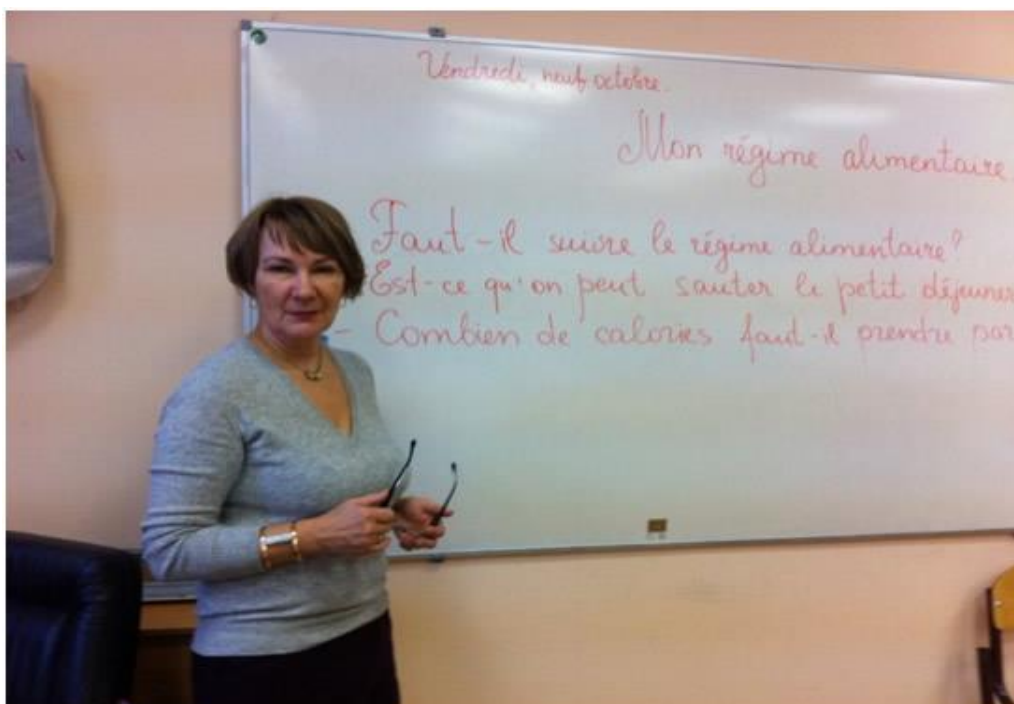 Vendredi, neuf octobre.
Mon régime alimentaire
Faut-il suivre le régime alimentaire?
Est-ce qu'on peut sauter le petit déjeuner
- Combien de calories faut-il prendre par